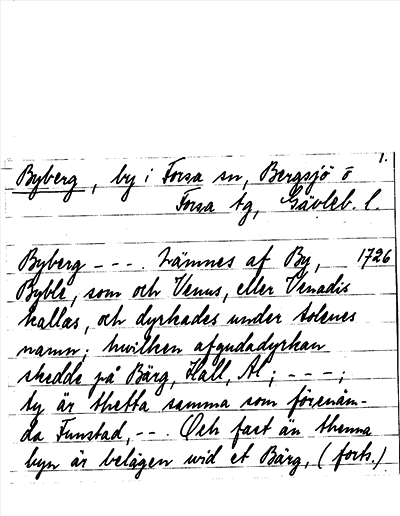 1.
Byberg, by i Forsa sn, Bergsjö o
Forsa tg, Gävleb. l.
Byberg - - - . Nämnes af By, 1726
Byble, som och Venus, eller Venadis
kallas, och dyrkades under solenes
namn; hwilken afgudadyrkan
skedde på Bärg, Häll, Al; - - - ;
ty är thetta samma som förenäm-
da Funstad, - - . Och fast än thenna
byn är belägen wid et Bärg, (forts.)